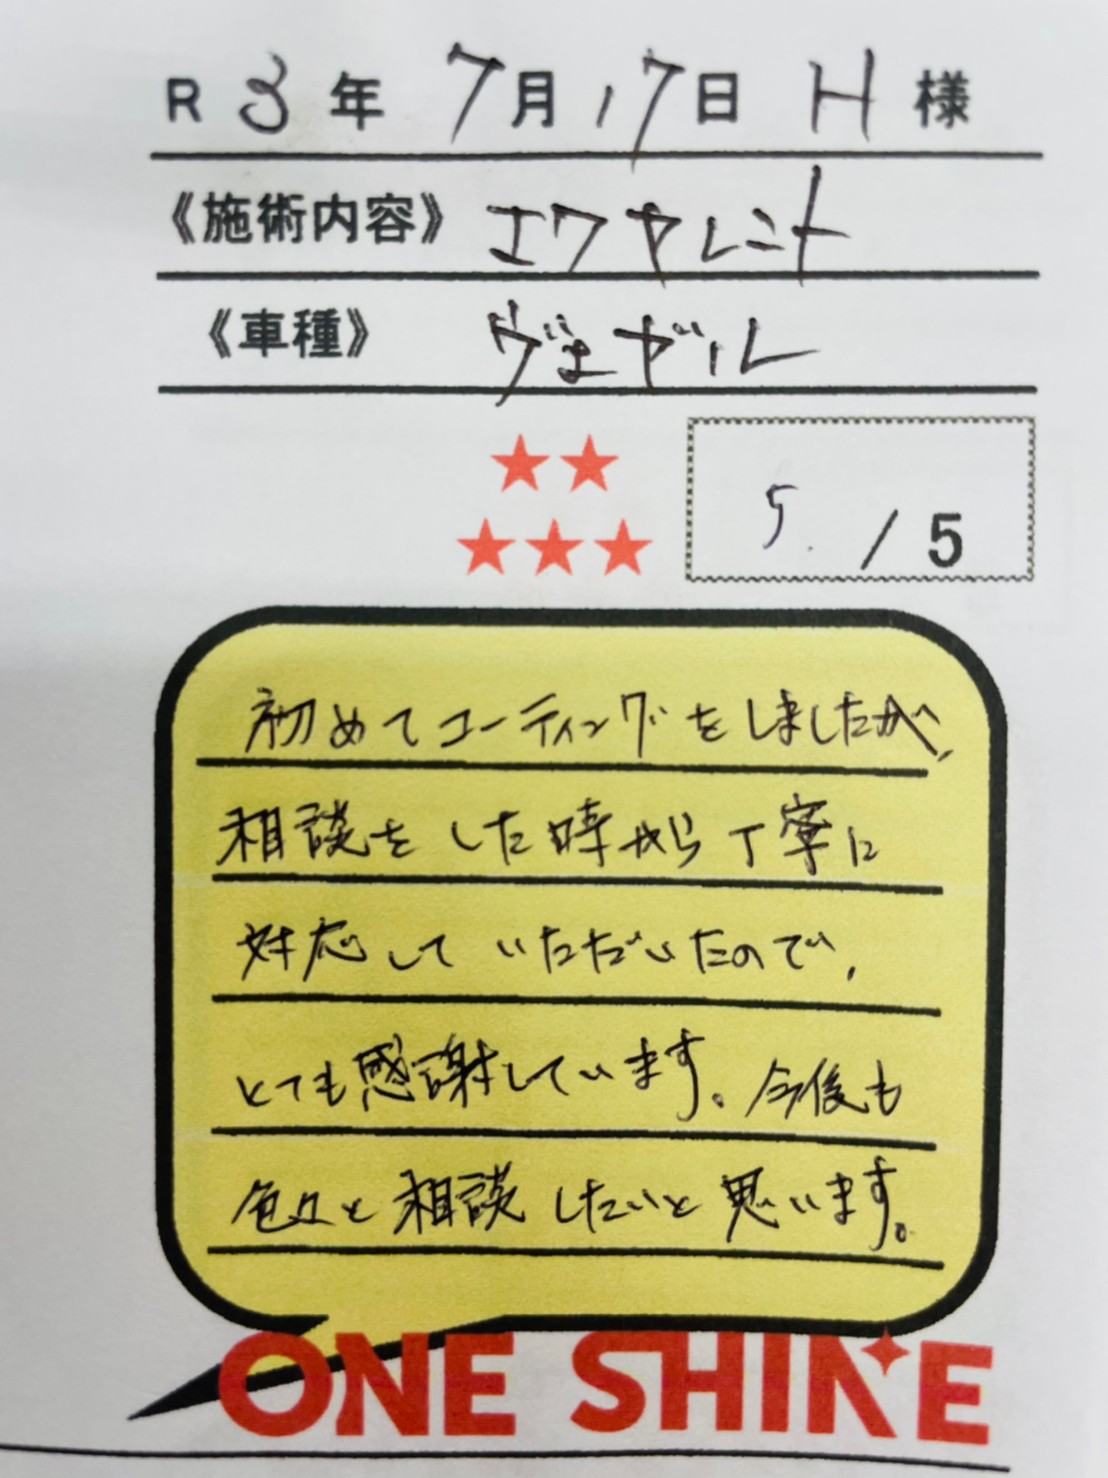 R 3年 7月17日 H 様
《施術内容》 エクヤレント
《車種》 ヴェゼル
5 / 5
初めてコーティングをしましたが、
相談をした時から丁寧に
対応していただいたので、
とても感謝しています。今後も
色々と相談したいと思います。
ONE SHINE